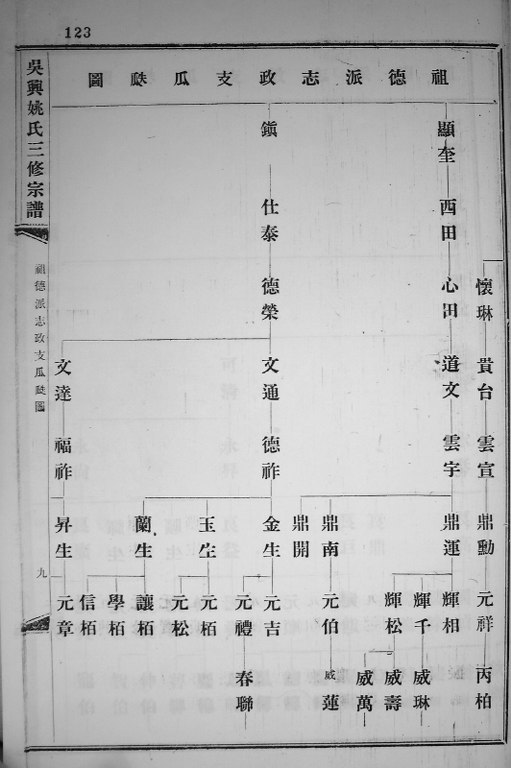 123
吳興姚氏三修宗譜
祖德派志政支瓜瓞圖
九
祖德派志政支瓜瓞圖
懷琳
貴台
雲宣
鼎勳
元祥
丙柏
顯奎
西田
心田
道文
雲宇
鼎運
輝相
輝千
威琳
輝松
威壽
威萬
鼎南
元伯
威蓮
鼎開
鎮
仕泰
德榮
文通
德祚
金生
元吉
元禮
春聯
玉生
元栢
元松
蘭生
讓栢
學栢
信栢
文達
福祚
昇生
元章